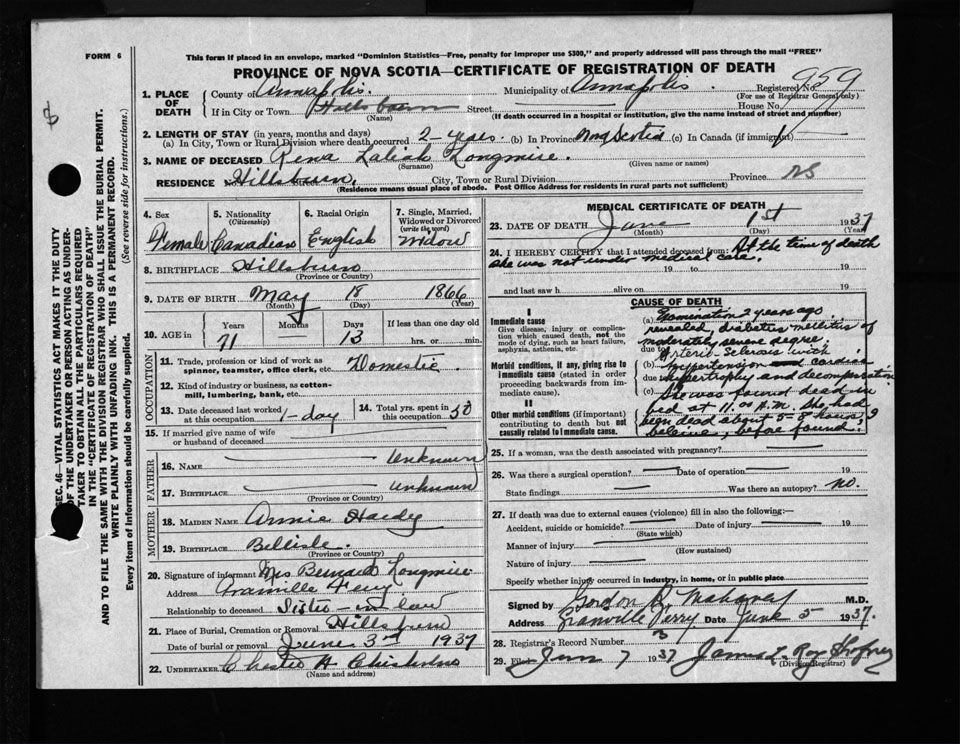 FORM 6
This form if placed in an envelope, marked "Dominion Statistics—Free, penalty for improper use $300," and properly addressed will pass through the mail "FREE"
PROVINCE OF NOVA SCOTIA—CERTIFICATE OF REGISTRATION OF DEATH
1. PLACE OF DEATH County of Annapolis. Municipality of Annapolis. Registered No. 959
(For use of Registrar General only)
If in City or Town Hillsburn Street House No.
(Name) (If death occurred in a hospital or institution, give the name instead of street and number)
2. LENGTH OF STAY (in years, months and days)
(a) In City, Town or Rural Division where death occurred 2- (b) In Province Nova Scotia (c) In Canada (if immigrant)
3. NAME OF DECEASED Rena Longmire.
(Surname) (Given name or names)
RESIDENCE Hillsburn. City, Town or Rural Division Province NS
(Residence means usual place of abode. Post Office Address for residents in rural parts not sufficient)
SEC. 46—VITAL STATISTICS ACT MAKES IT THE DUTY
OF THE UNDERTAKER OR PERSON ACTING AS UNDER-
TAKER TO OBTAIN ALL THE PARTICULARS REQUIRED
IN THE "CERTIFICATE OF REGISTRATION OF DEATH"
AND TO FILE THE SAME WITH THE DIVISION REGISTRAR WHO SHALL ISSUE THE BURIAL PERMIT.
WRITE PLAINLY WITH UNFADING INK. THIS IS A PERMANENT RECORD.
Every item of Information should be carefully supplied. (See reverse side for instructions.)
4. Sex Female
5. Nationality (Citizenship) Canadian
6. Racial Origin English
7. Single, Married, Widowed or Divorced (write the word) Widow
8. BIRTHPLACE Hillsburn
(Province or Country)
9. DATE OF BIRTH May 18 1866
(Month) (Day) (Year)
10. AGE in Years Months Days If less than one day old
71 13 hrs. or min.
OCCUPATION
11. Trade, profession or kind of work as spinner, teamster, office clerk, etc. Domestic.
12. Kind of industry or business, as cotton-mill, lumbering, bank, etc.
13. Date deceased last worked at this occupation 1-day
14. Total yrs. spent in this occupation 50
15. If married give name of wife or husband of deceased
FATHER
16. NAME Unknown
17. BIRTHPLACE Unknown
(Province or Country)
MOTHER
18. MAIDEN NAME Annie Hardy
19. BIRTHPLACE Bellisle.
(Province or Country)
20. Signature of informant Mrs Bernard Longmire
Address Granville Ferry
Relationship to deceased Sister-in law
21. Place of Burial, Cremation or Removal Hillsburn
Date of burial or removal June 3rd 1937
22. UNDERTAKER Chester A Chisholm
(Name and address)
MEDICAL CERTIFICATE OF DEATH
23. DATE OF DEATH June 1st 1937
(Month) (Day) (Year)
24. I HEREBY CERTIFY that I attended deceased from: At the time of death
she was not under medical care. 19 to 19
and last saw h alive on 19
I
Immediate cause
Give disease, injury or complication which caused death, not the mode of dying, such as heart failure, asphyxia, asthenia, etc.
Morbid conditions, if any, giving rise to immediate cause (stated in order proceeding backwards from immediate cause).
II
Other morbid conditions (if important) contributing to death but not causally related to immediate cause.
CAUSE OF DEATH
(a) Examination 2 years ago
revealed, diabetes mellitus of
moderately severe degree.
due to
(b) Arterio-Sclerosis with
hypertension and cardiac
due hypertrophy and decompensation
(c) She was found dead in
bed at 11.00 A.M. She had
been dead about 5-8 hours, I
believe, before found.
25. If a woman, was the death associated with pregnancy?
26. Was there a surgical operation? Date of operation 19
State findings Was there an autopsy? No.
27. If death was due to external causes (violence) fill in also the following:
Accident, suicide or homicide? Date of injury 19
(State which)
Manner of injury
(How sustained)
Nature of injury
Specify whether injury occurred in industry, in home, or in public place
Signed by Gordon R Mahaney M.D.
Address Granville Ferry Date June 5 1937.
28. Registrar's Record Number 3
29. Filed Jun 7 1937 James L. Roy
(Division Registrar)